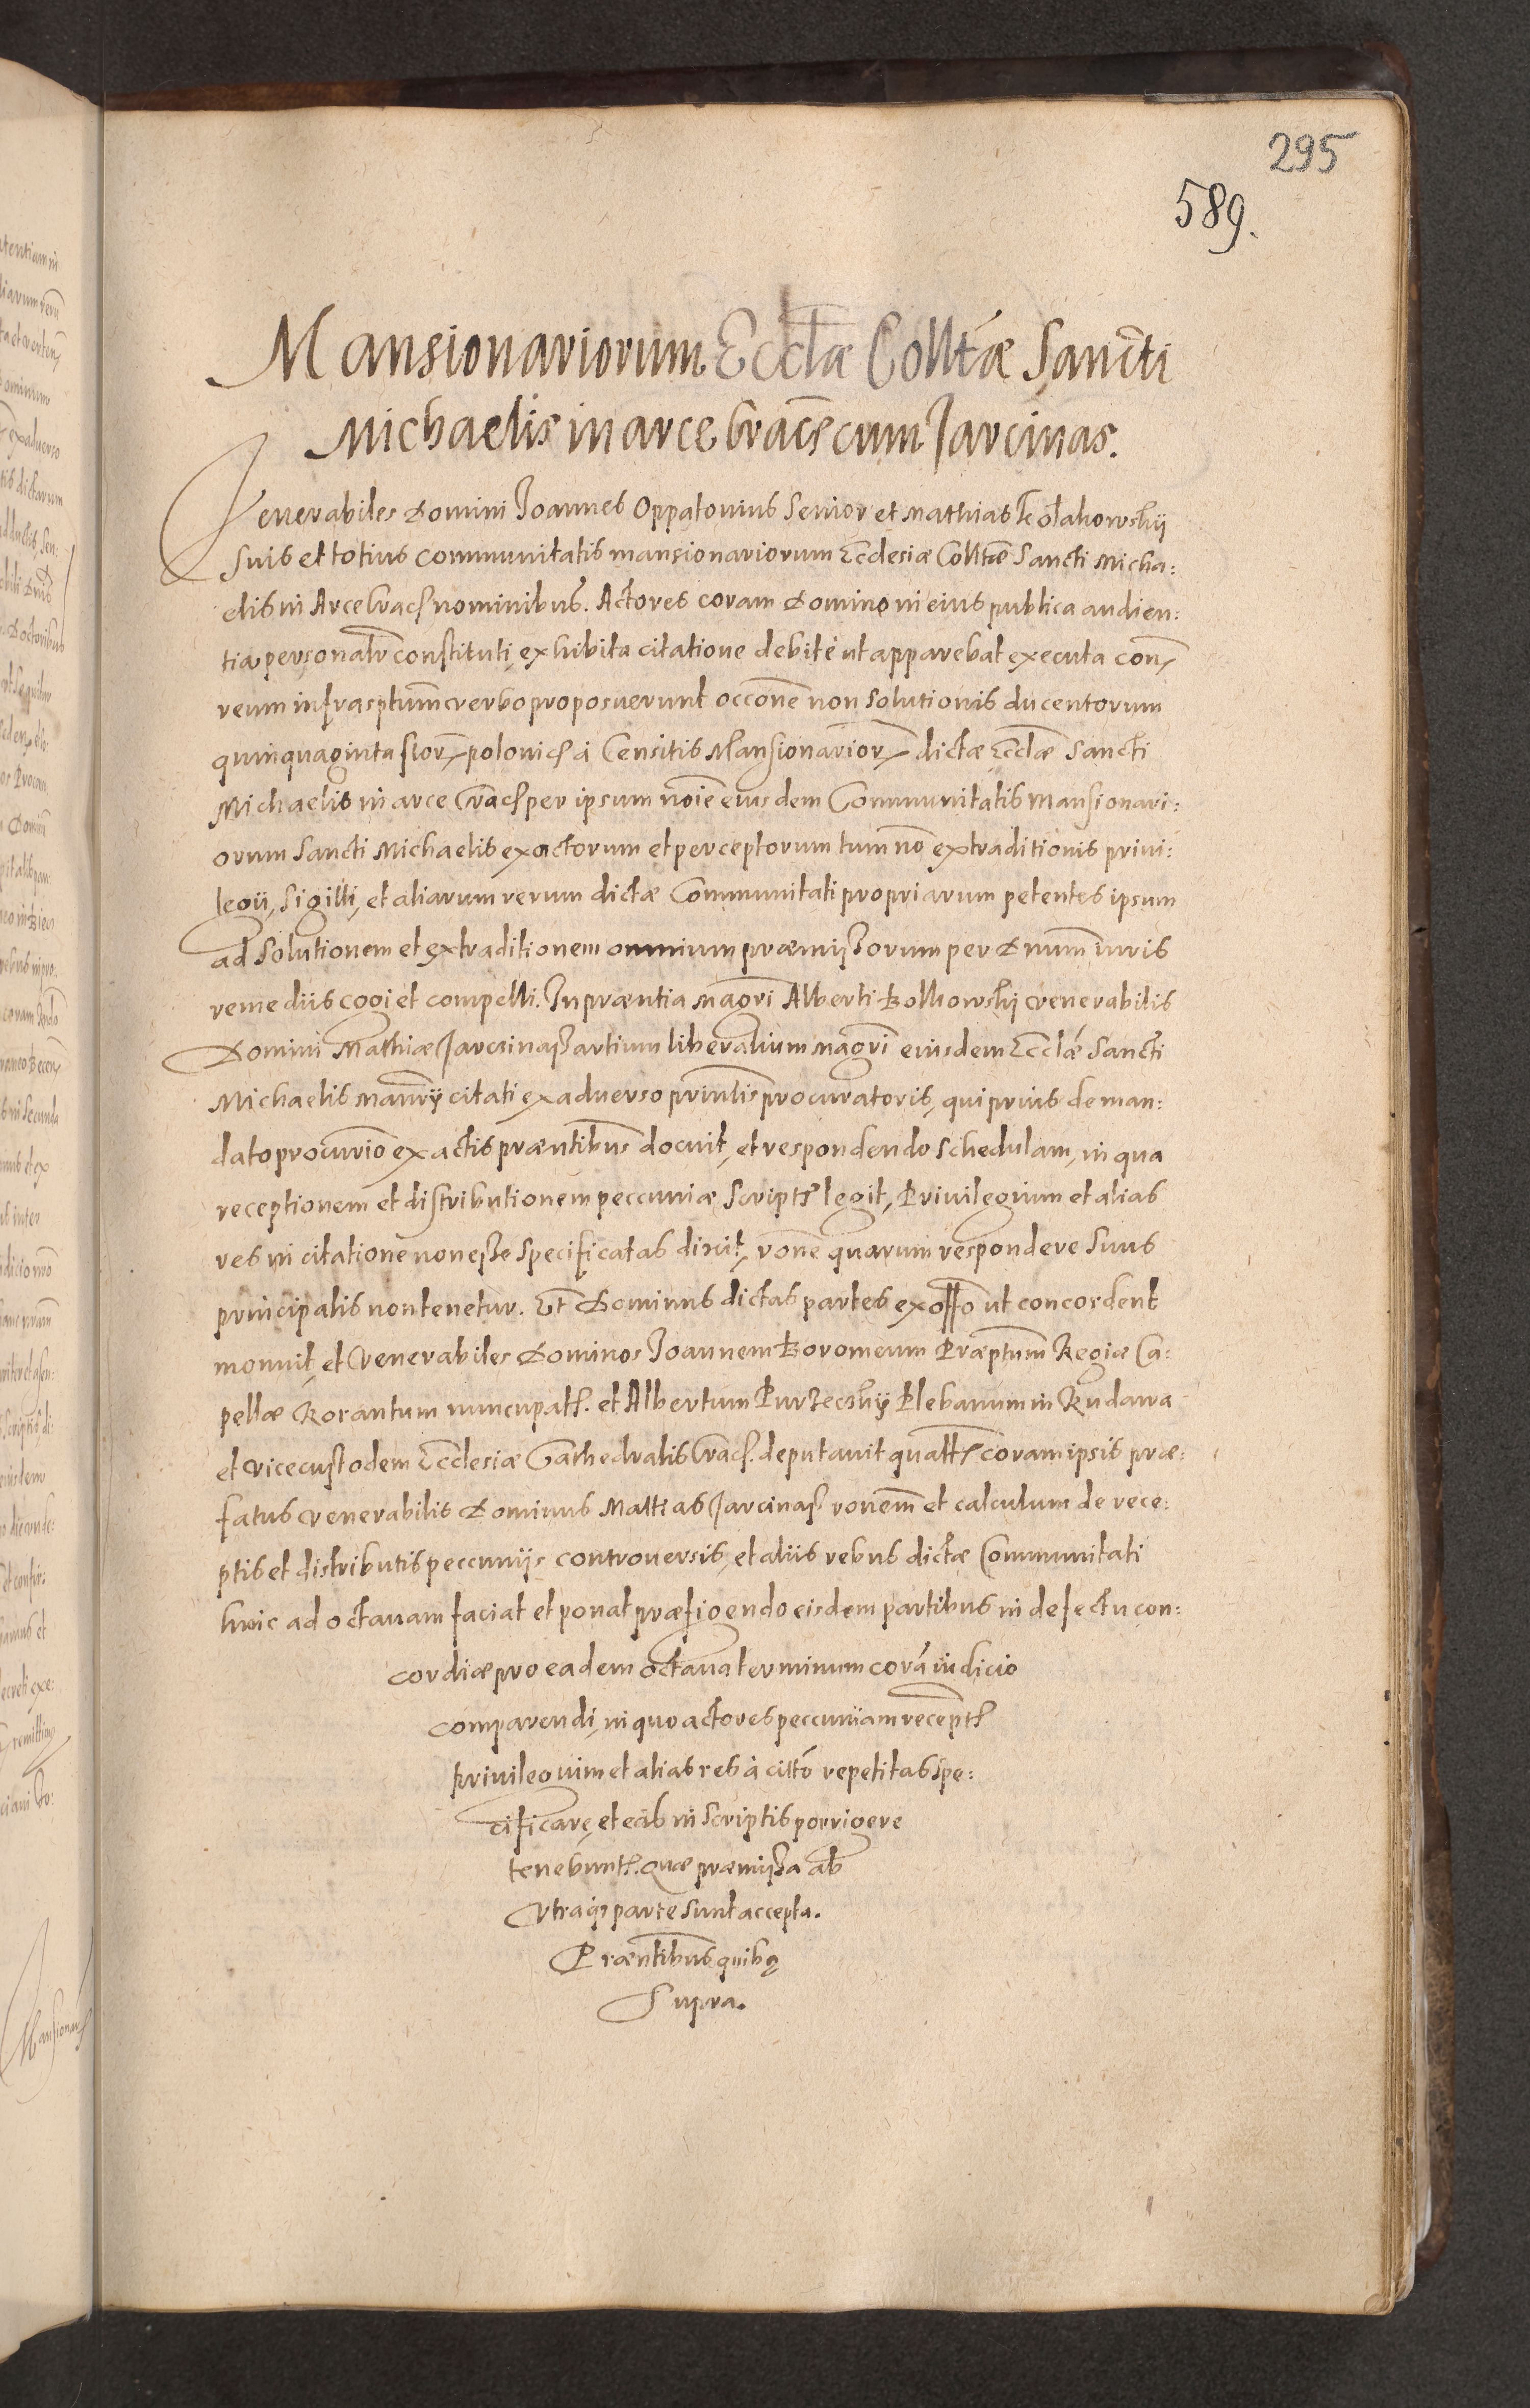 295
589.
Mansionariorum Eccłæ Collt́æ Sancti
Michaelis in arce Craceñ cum Jarcinas.
Venerabiles Domini Joannes Oppatovius Senior et Mathias Kołakowskij
suis et totius communitatis mansionariorum Ecclesiæ Colltæ Sancti Micha:
elis in Arce Crac nominibus. Actores coram Domino in eius publica audien:
tia personalr constituti, exhibita citatione debitè ut apparebat executa con
reum infrasptum verbo proposuerunt occone non solutionis ducentorum
quinquaginta flor polonic à Censitis Mansionarior dictæ Ecclæ Sancti
Michaelis in arce Crac per ipsum noie eiusdem Communitatis Mansionari:
orum Sancti Michaelis exactorum et perceptorum tum no extraditionis privi:
legii, sigilli, et aliarum rerum dictæ Communitati propriarum petentes ipsum
ad solutionem et extraditionem omnium præmissorum per Dnum iuris
remediis cogi et compelli. In præntia Magri Alberti Bolkowskj venerabilis
Domini Mathiæ Jarcinas artium liberalium Magri eiusdem Ecclæ Sancti
Michaelis citati ex adverso prinlis procuratoris, qui prius de man:
dato procurio ex actis præntibus docuit, et respondendo schedulam, in qua
receptionem et distributionem peccuniæ script legit, Privilegium et alias
res in citatione non esse specificatas dixit, rone quarum respondere suus
principalis non tenetur. Et Dominus dictas partes ex offo ut concordent
monuit, et Venerabiles Dominos Joannem Boromeum Præptum Regiæ Ca:
pellæ Rorantum nuncupat. et Albertum Purzeckij Plebanum in Rudawa
et vicecustodem Ecclesiæ Cathedralis Crac. deputavit quatt coram ipsis præ:
fatus venerabilis Dominus Mattias Jarcinas ronem et calculum de rece:
ptis et distributis peccuniis controversis, et aliis rebus dictæ Communitati
hinc ad octavam faciat et ponat præfigendo eisdem partibus in defectu con:
cordiæ pro eadem octava terminum corã iudicio
comparendi, in quo actores peccuniam recept
privilegium et alias res à citto repetitas spe:
cificare, et eas in scriptis porrigere
tenebunt. Quæ præmissa ab
utraq parte sunt accepta.
Præntibus quibq
supra.